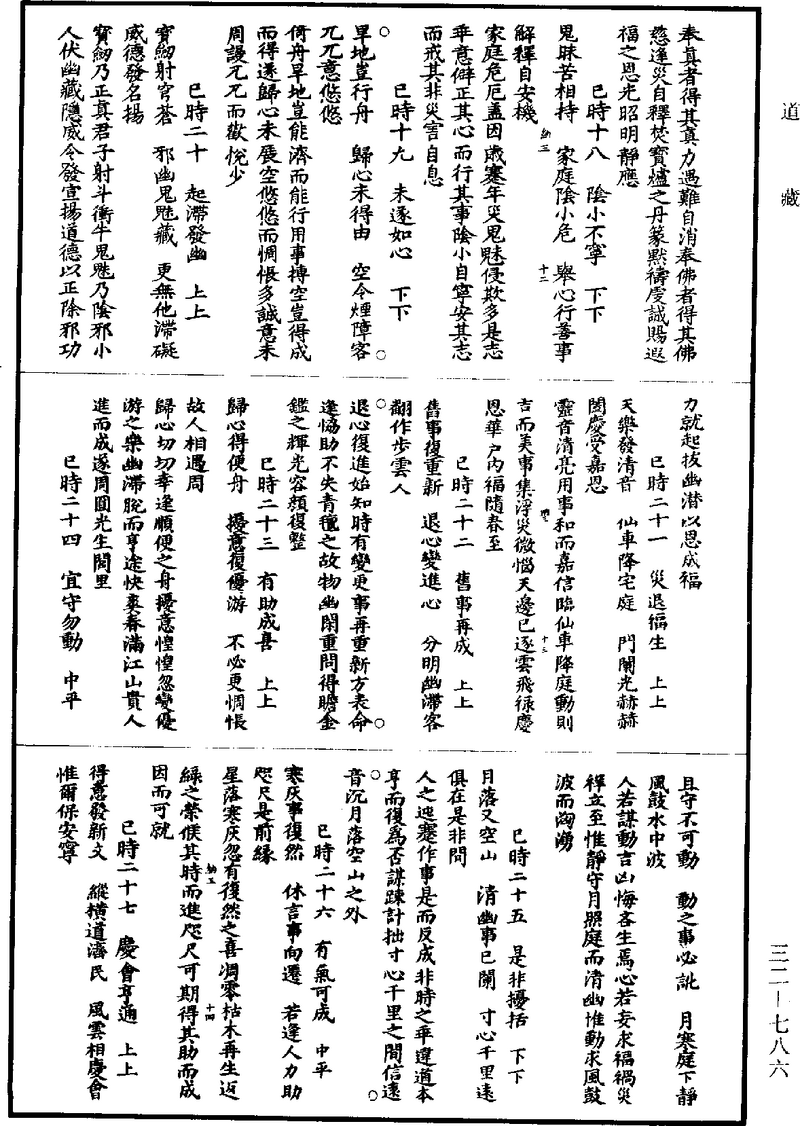 道藏
奉真者得其真力遇難自消奉佛者得其佛
慈逢災自釋焚寶爐之丹篆黙禱虔誠賜遐
福之恩光昭明靜應
巳時十八　陰小不寧　下下
鬼昧苦相持　家庭陰小危　舉心行善事
解釋自安機
納三
十二
家庭危厄盖因歲寒年災鬼魅侵欺多是志
乖意僻正其心而行其事陰小自寧安其志
而戒其非災害自息
巳時十九　未遂如心　下下
旱地豈行舟　歸心未得由　空令煙障客
兀兀意悠悠
倚舟旱地豈能濟而能行用事摶空豈得成
而得遂歸心未展空悠悠而惆悵多誠意未
周謾兀兀而歡悅少
巳時二十　起滯發幽　上上
寶劒射穹蒼　邪幽鬼魅藏　更無他滯礙
威德發名揚
寶劒乃正真君子射斗衝牛鬼魅乃陰邪小
人伏幽藏隱威令發宣揚道德以正除邪功
力就起拔幽潛以恩成福
巳時二十一　災退福生　上上
天樂發清音　仙車降宅庭　門闌光赫赫
閤慶受嘉恩
靈音清亮用事和而嘉信臨仙車降庭動則
吉而美事集浮災微惱天邊已逐雲飛祿慶
十三
恩華戶內福隨春至
巳時二十二　舊事再成　上上
舊事復重新　退心變進心　分明幽滯客
翻作步雲人
退心復進始知時有變更事再重新方表命
逢恊助不失青氊之故物幽閑重問得瞻金
鑑之輝光容顏復整
巳時二十三　有助成喜　上上
歸心得便舟　擾意復優游　不必更惆悵
故人相遇周
歸心切切幸逢順便之舟擾意惶惶忽變優
游之樂幽滯脫而亨途快裏春滿江山貴人
進而成遂周圓光生閭里
巳時二十四　宜守勿動　中平
且守不可動　動之事必訛　月寒庭下靜
風鼓水中波
人若謀動言凶悔吝生焉心若妄求福禍災
稱立至惟靜守月照庭而清幽惟動求風鼓
波而洶湧
巳時二十五　是非擾括　下下
月落又空山　清幽事已闌　寸心千里遠
俱在是非間
人之迍蹇作事是而反成非時之乖違道本
亨而復為否謀踈計拙寸心千里之間信遠
音沉月落空山之外
巳時二十六　有氣可成　中平
寒灰事復然　休言事向遷　若逢人力助
咫尺是前緣
星落寒灰忽有復然之喜凋零枯木再生返
納五
十四
綠之榮候其時而進咫尺可期得其助而成
因而可就
巳時二十七　慶會亨通　上上
得意發新文　縱橫道濟民　風雲相慶會
惟爾保安寧
三二—七八六